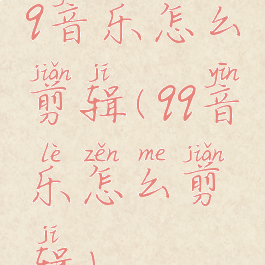 9音乐怎么
jiǎn jí yīn
剪辑(99音
lè zěn me jiǎn
乐怎么剪
jí
辑)